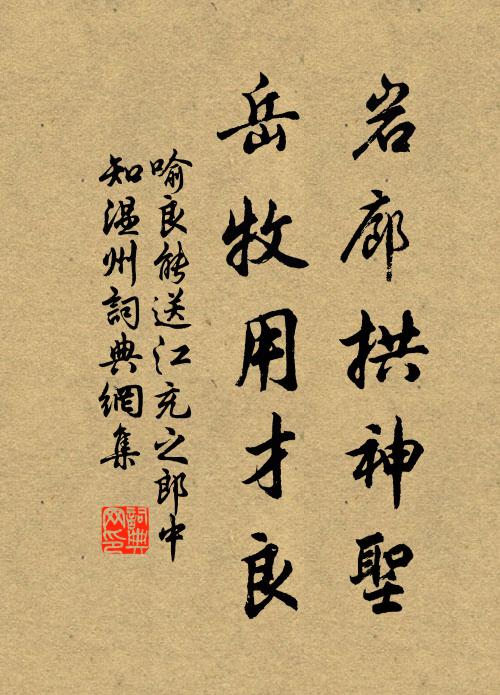 岩廊拱神聖
岳牧用才良
喻良能送江充之郎中
知温州詞典網集
詞典网印